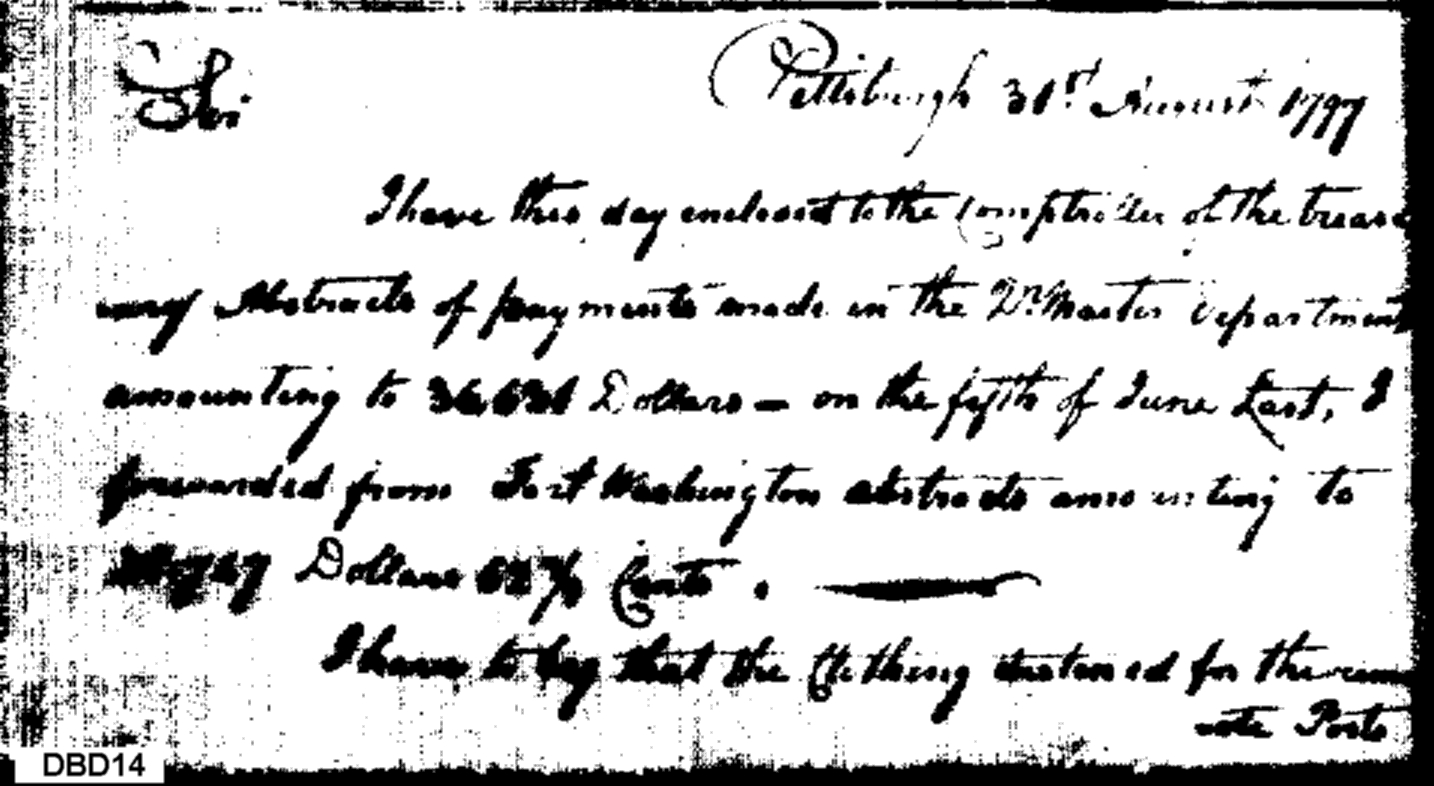 Sir
Pittsburgh 31st August 1797
I have this day enclosed to the Comptroller of the treas
ury Abstracts of payments made in the Qr. Master Department
amounting to Dollars — on the fifth of June Last, I
forwarded from Fort Washington abstracts amounting to
Dollars Cents .
I have to beg that the Clothing destined for the rem
ote Posts
DBD14